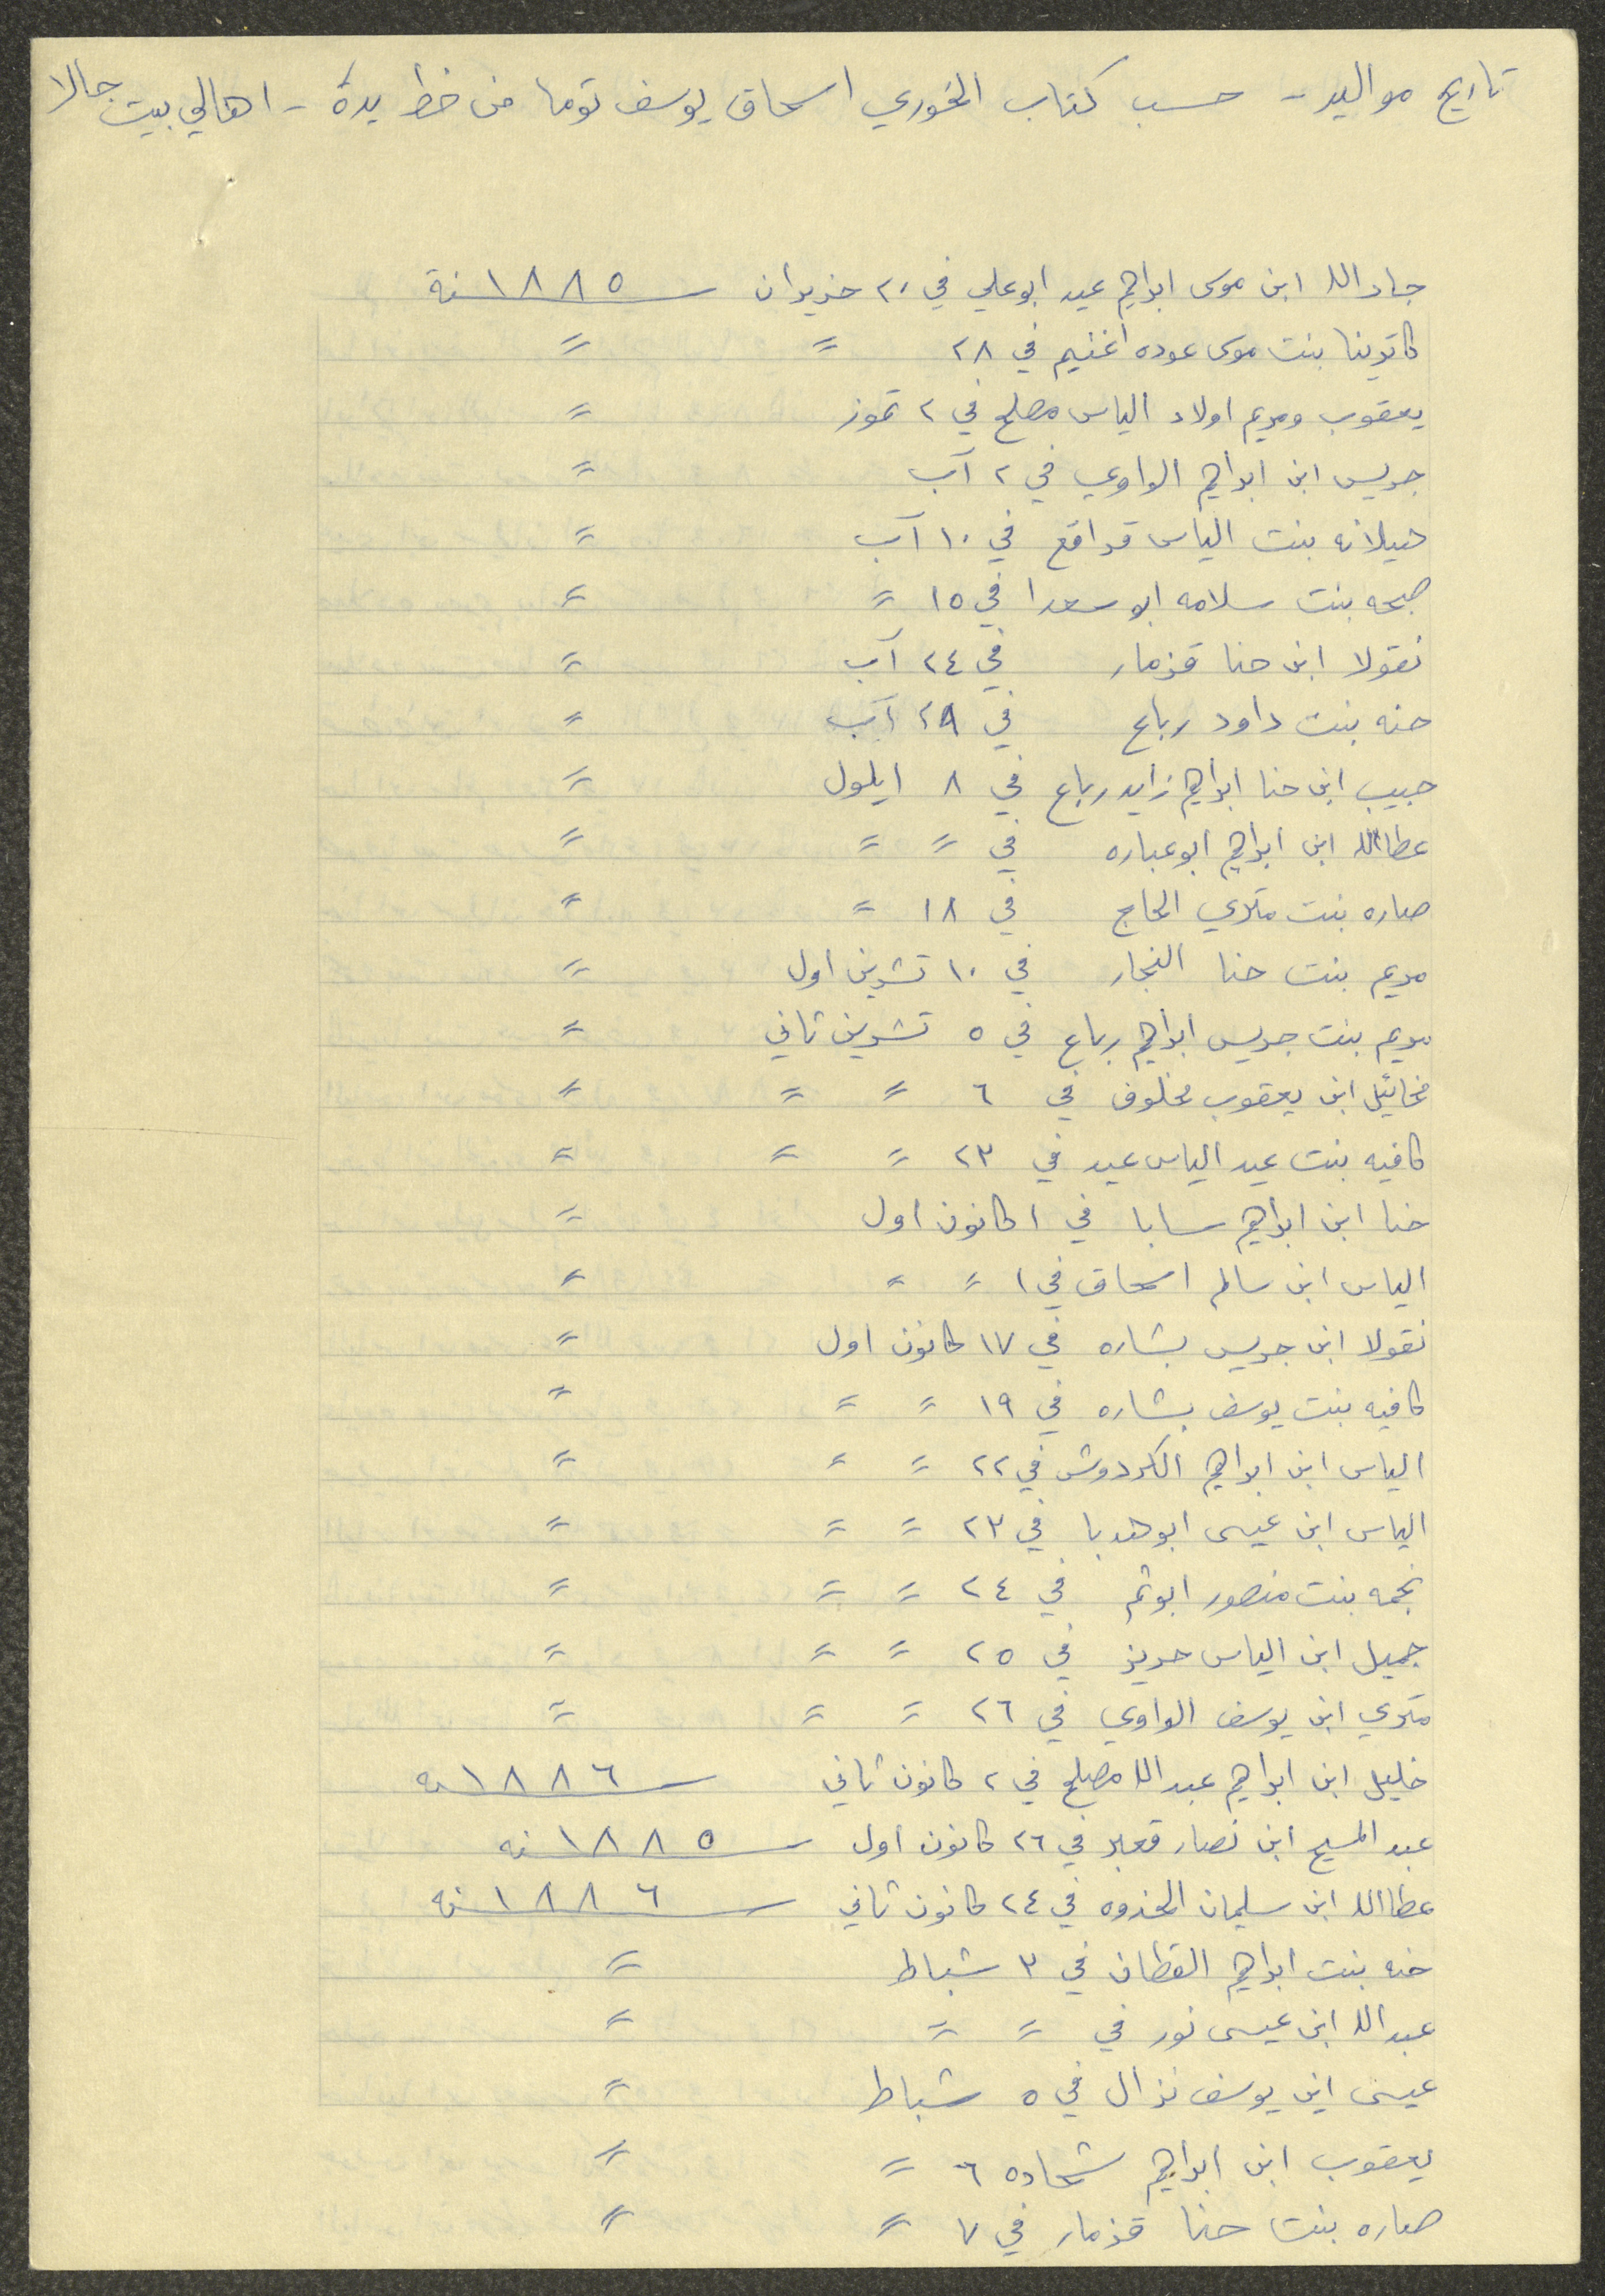 تاريخ مواليد - حسب كتاب الخوري اسحاق يوسف توما من خط يده - اهالي بيت جالا
جادالله ابن موسى ابراهيم عيد ابوعلي في ٢٠ حزيران سنة ١٨٨٥
كاترينا بنت موسى عوده اغنيم في ٢٨ = =
يعقوب ومريم اولاد الياس مصلح في ٢ تموز =
جريس ابن ابراهيم الواوي في ٢ آب =
هيلانه بنت الياس قراقع في ١٠ آب =
صبحه بنت سلامه ابو سعدا في ١٥ = =
نقولا ابن حنا قزمار في ٢٤ آب =
حنه بنت داود رباع في ٢٩ آب =
حبيب ابن حنا ابراهيم زايد رباع في ٨ ايلول =
عطاالله ابن ابراهيم ابوعباره في = = =
صاره بنت متري الحاج في ١٨ = =
مريم بنت حنا النجار في ١٠ تشرين اول =
مريم بنت جريس ابراهيم رباع في ٥ تشرين ثاني =
مخائيل ابن يعقوب مخلوف في ٦ = = =
كافيه بنت عيد الياس عيد في ٢٣ = = =
حنا ابن ابراهيم سابا في ١ كانون اول =
الياس ابن سالم اسحاق في ١ = = =
نقولا ابن جريس بشاره في ١٧ كانون اول =
كافيه بنت يوسف بشاره في ١٩ = = =
الياس ابن ابراهيم الكردوش في ٢٢ = = =
الياس ابن عيسى ابوهدبا في ٢٣ = = =
نجمه بنت منصور ابوتم في ٢٤ = = =
جميل ابن الياس حريز في ٢٥ = = =
متري ابن يوسف الواوي في ٢٦ = = =
خليل ابن ابراهيم عبدالله مصلح في ٢ كانون ثاني سنه ١٨٨٦
عبد المسيح ابن نصار قعبر في ٢٦ كانون اول سنه ١٨٨٥
عطاالله ابن سليمان الحذوه في ٢٤ كانون ثاني سنه ١٨٨٦
حنه بنت ابراهيم القطان في ٣ شباط =
عبدالله ابن عيسى نور في = = =
عيسى ابن يوسف نزال في ٥ شباط =
يعقوب ابن ابراهيم شحاده ٦ = =
صاره بنت حنا قزمار في ٧ = =